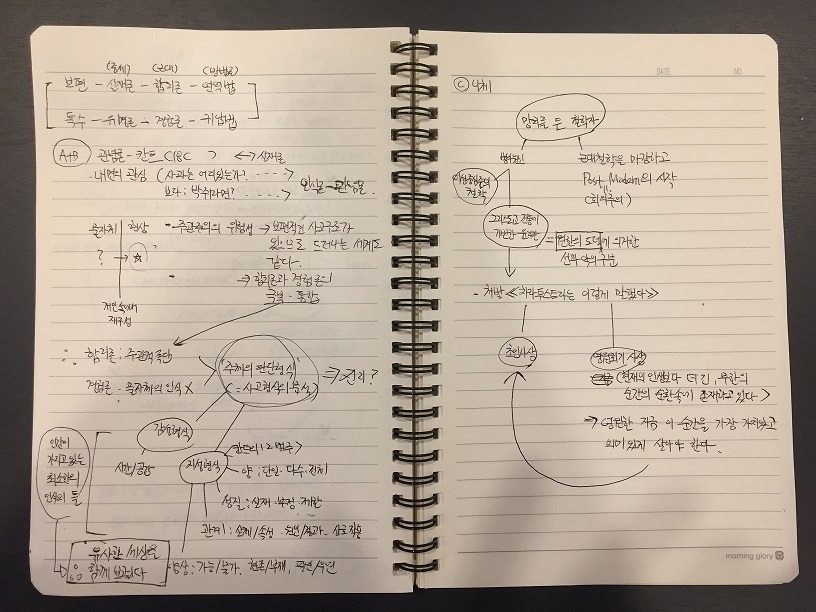 (중세) (근대) (방법론)
보편 - 실재론 - 합리론 - 연역법
특수 - 유명론 - 경험론 - 귀납법
A+B 관념론 - 칸트 ↔ 실재론
- 내면의 관심 (사과는 어디있는가? ····>
보다 : 박쥐라면? ····> 인식론 - 관념론
물자체 현상
?
- 주관주의의 위험성 → 보편적인 사고구조가
있으므로 드러나는 세계도
같다.
→ 합리론과 경험론의
극복·통합
재구성
∴ 합리론 : 주관적 독단
경험론 - 물자체의 인식 X
"주체의 판단형식"
(= 사고형식의 분석)
감성형식
시간/공간
지성형식
칸트의 12범주
양 : 단일·다수·전체
성질 : 실재·부정·제한
관계 : 실체/속성 · 원인/결과 · 상호작용
양상 : 가능/불가, 현존/부재, 필연/우연
인간이
가지고 있는
최소한의
인식의 틀
유사한 세상을
함께 보고있다
DATE NO
ⓒ 니체
망치를 든 철학자
근대철학을 마감하고
Post Modern의 시작
(회의주의)
철학
그리스도교 전통이
= 원한의 도덕에 의거한
선과 악의 구분
- 처방 《차라투스트라는 이렇게 말했다》
초인사상
영원회기 사상
(현재의 인생보다 더 긴, 무한의
순간의 순환속에 존재하고 있다>
→ 영원한 지금 이 순간을 가장 가치있고
의미있게 살아야 한다.
morning glory